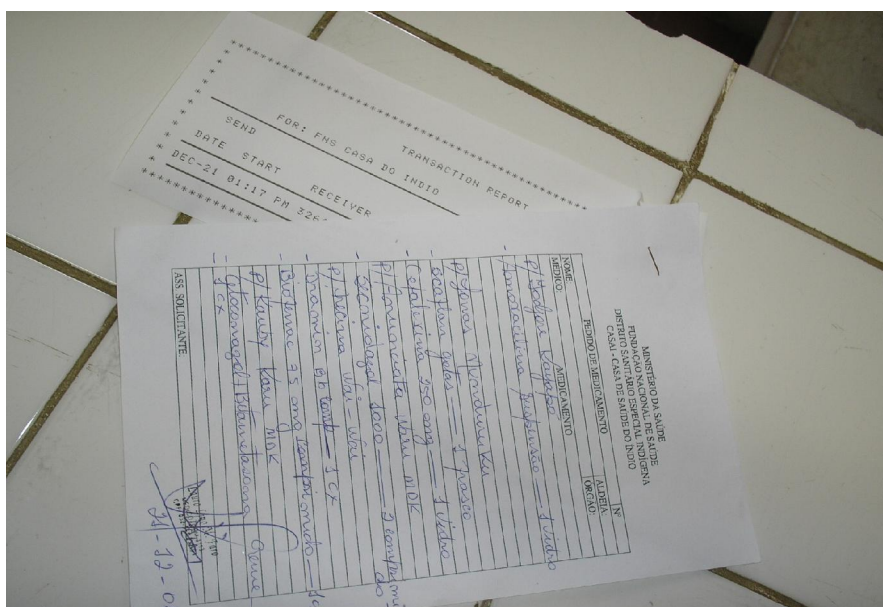 TRANSACTION REPORT
FOR: FMS CASA DO INDIO
SEND
DATE START RECEIVER
DEC-21 01:17 PM 326
MINISTÉRIO DA SAÚDE
FUNDAÇÃO NACIONAL DE SAÚDE
DISTRITO SANITÁRIO ESPECIAL INDÍGENA
CASAI - CASA DE SAÚDE DO ÍNDIO
PEDIDO DE MEDICAMENTO Nº
NOME: ALDEIA:
MÉDICO: ORGÃO:
MEDICAMENTO
P/ Kayapó
- suspensão — 1 vidro
P/ Jonas Munduruku
- gotas — 1 frasco
- Cefalexina 500 mg — 1 vidro
P/ Anunciata MDK
- Secnidazol 1000 — 2 comprimi
do
P/ Luciana Wai-Wai
- Dramin B6 — 1 cx
- Biofenac 75 mg comprimido — 1c
P/ Karu MDK
- Cetoconazol + Betametasona creme -
- 1cx
ASS. SOLICITANTE
21-12-0